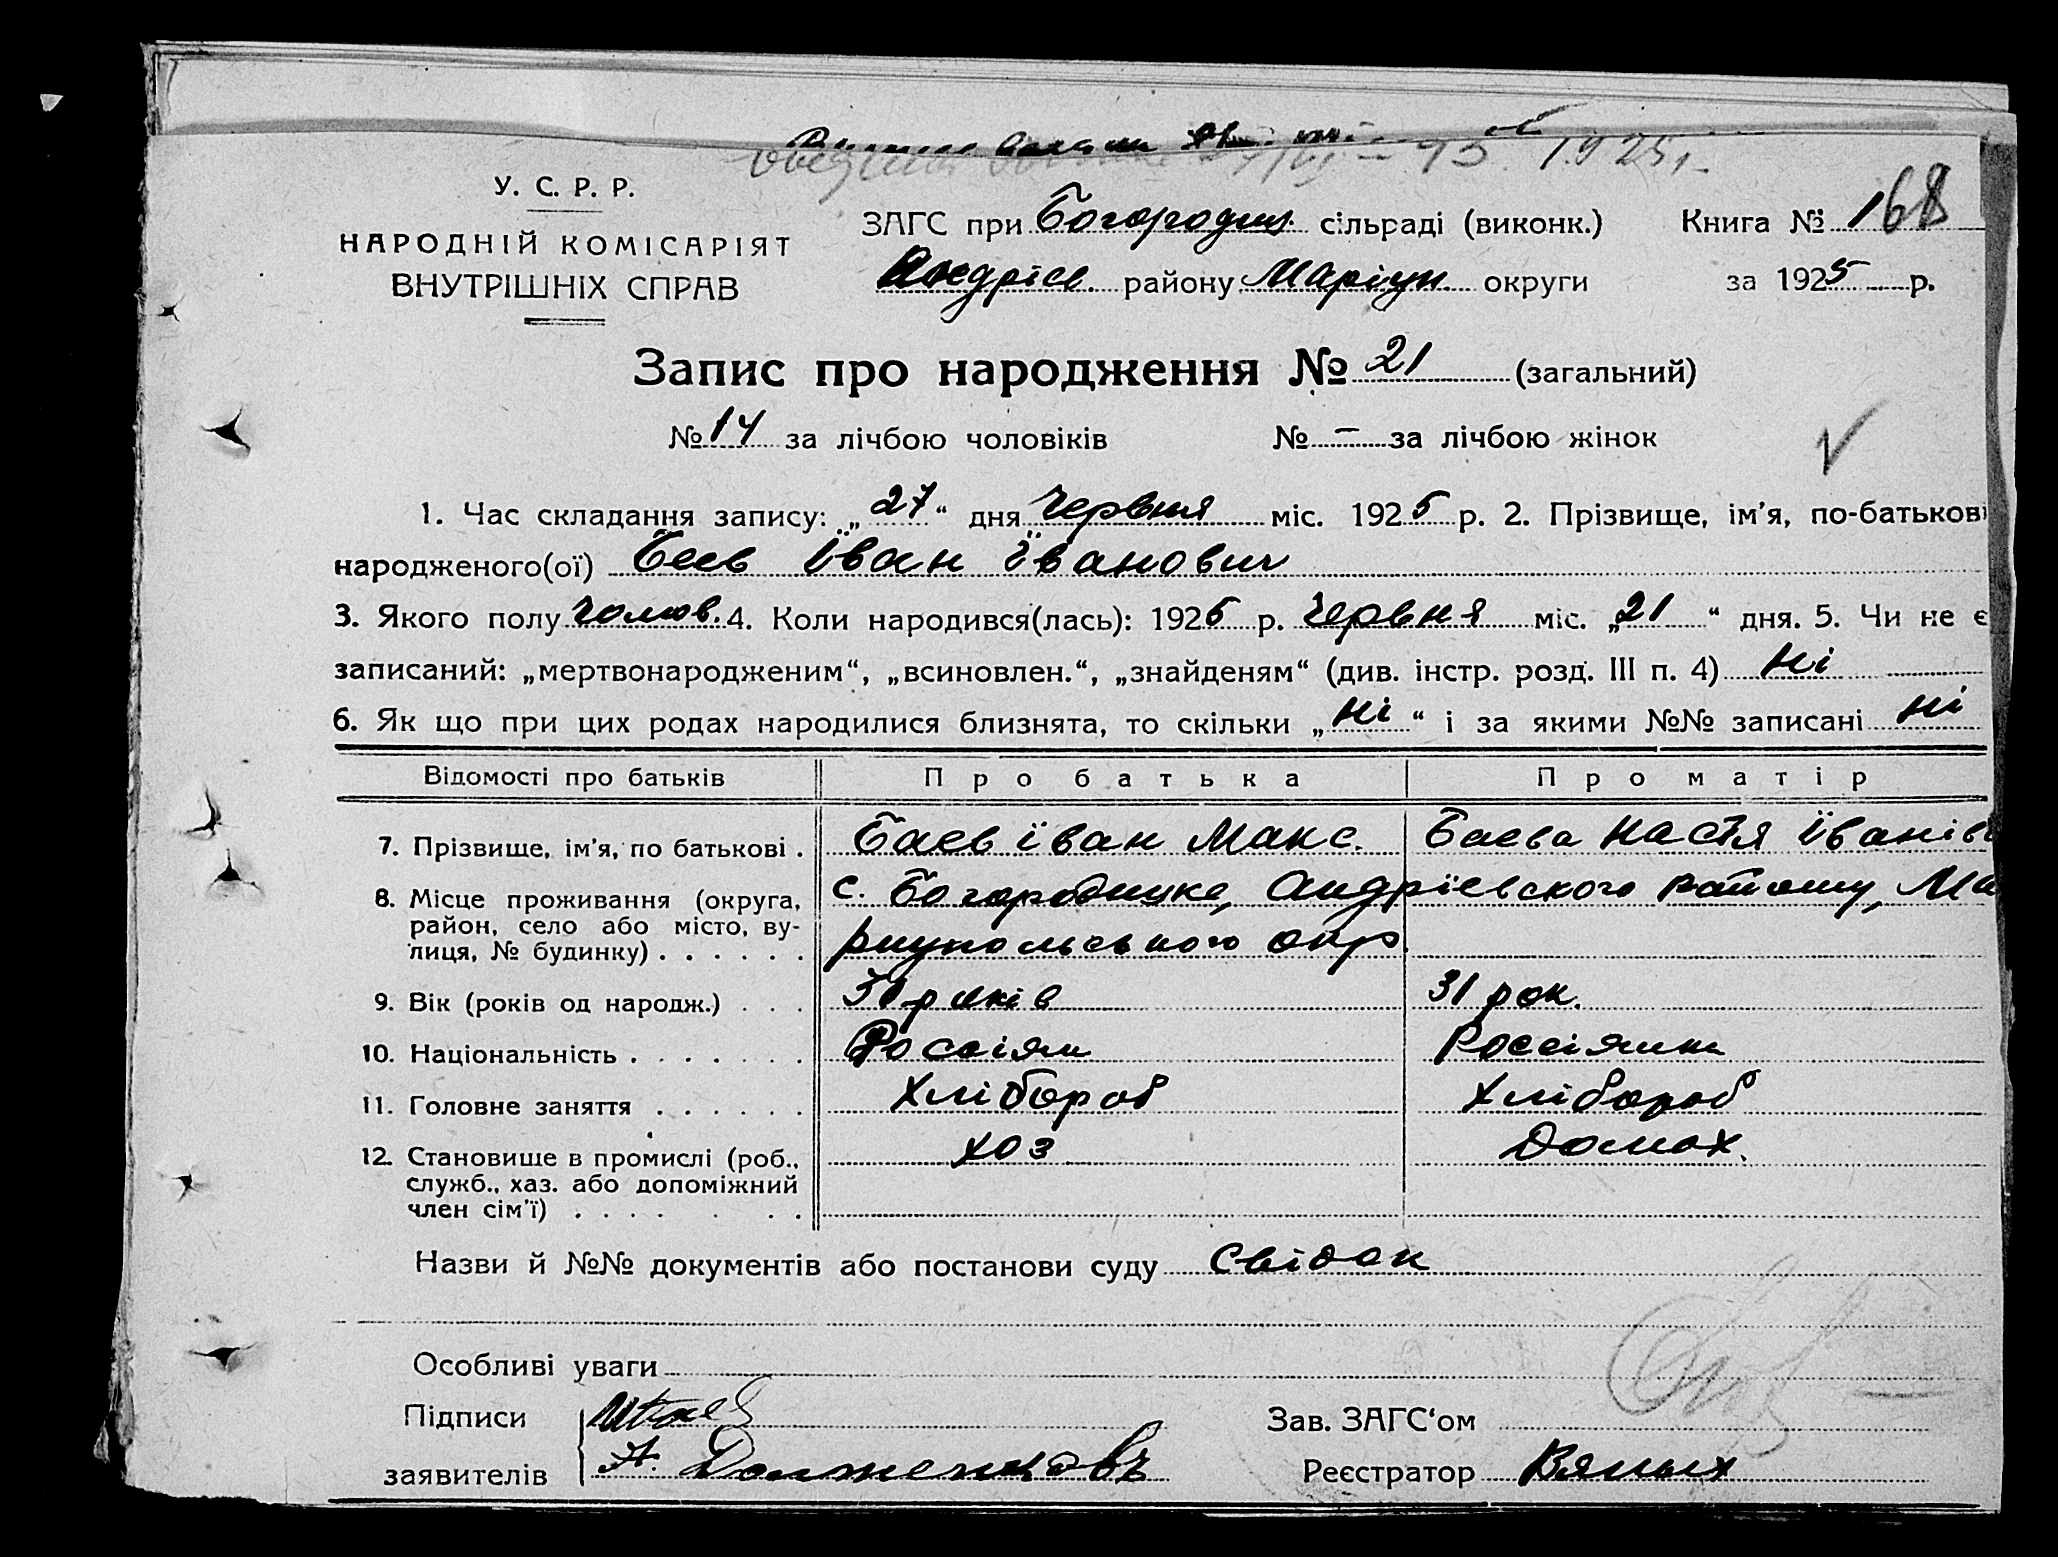 1925 р.
У. С. Р. Р.
НАРОДНІЙ КОМІСАРІЯТ
ВНУТРІШНІХ СПРАВ
ЗАГС при Богородиц. сільраді (виконк.) Книга № 168
Андрієв. району Маріуп. округи за 1925 р.
Запис про народження № 21 (загальний)
№ 14 за лічбою чоловіків № — за лічбою жінок
1. Час складання запису: „27“ дня Червня міс. 1925 р. 2. Прізвище, ім'я, по-батькові
народженого(ої) Баев Їван Їванович
3. Якого полу чолов. 4. Коли народився(лась): 1925 р. Червня міс. „21“ дня. 5. Чи не є
записаний: „мертвонародженим“, „всиновлен.“, „знайденям“ (див. інстр. розд. III п. 4) Ні
6. Як що при цих родах народилися близнята, то скільки „Ні“ і за якими №№ записані Ні
Відомості про батьків Про батька Про матір
7. Прізвище, ім'я, по батькові . Баев Їван Макс. Баева Настя Їванів
8. Місце проживання (округа, с. Богородицке, Андрієвского Району, Ма
район, село або місто, ву-
лиця, № будинку) . . . . . . риупольського окр.
9. Вік (років од народж.) . . . років 31 рок.
10. Національність . . . . . . . Россіян Россіянка
11. Головне заняття . . . . . . Хлібороб Хлібороб
12. Становище в промислі (роб., хоз Домох.
служб., хаз. або допоміжний
член сім'ї) . . . . . . .
Назви й №№ документів або постанови суду Свідок
Особливі уваги
Підписи Зав. ЗАГС'ом
заявителів А. Долженковъ Реєстратор Вялых